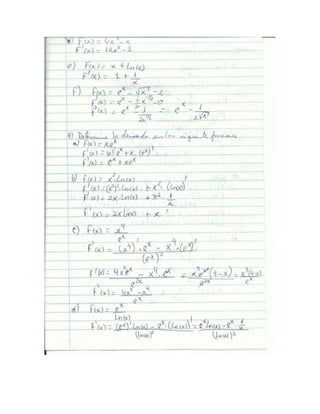 F(x) = 4x³ - x
F'(x) = 12x² - 1
e) F(x) = x + Ln(x)
F'(x) = 1 + 1/x
F) F(x) = eˣ - √x - 2
F'(x) = eˣ - 1/2 x^(-1/2) - 0
F'(x) = eˣ - 1/(2x^(1/2)) = eˣ - 1/(2√x)
4) la en los
a) F(x) = xeˣ
F'(x) = (x)' eˣ + x · (eˣ)'
F'(x) = eˣ + xeˣ
b) F(x) = x² · Ln(x)
F'(x) = (x²)' · Ln(x) + x² · (Ln(x))'
F'(x) = 2x · Ln(x) + x² · 1/x
F'(x) = 2x Ln(x) + x
c) F(x) = x⁴/eˣ
F'(x) = ((x⁴)' · eˣ - x⁴ · (eˣ)')/(eˣ)²
F'(x) = (4x³eˣ - x⁴ · eˣ)/e²ˣ = x³eˣ(4-x)/e²ˣ = x³(4-x)/eˣ
F'(x) = (4x³ - x⁴)/eˣ
d) F(x) = eˣ/Ln(x)
F'(x) = ((eˣ)' Ln(x) - eˣ · (Ln(x))')/(Ln(x))² = (eˣ Ln(x) - eˣ · 1/x)/(Ln(x))²